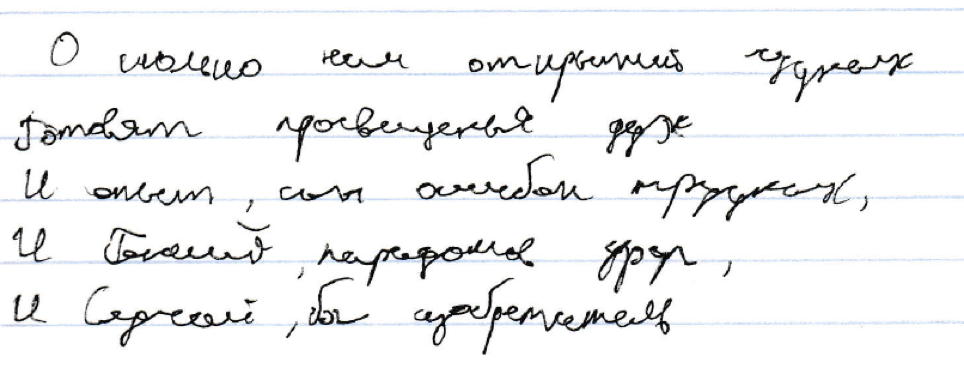 О сколько нам открытий чудных
Готовят просвещенья дух
И опыт, сын ошибок трудных,
И Гений, парадоксов друг,
И Случай, бог изобретатель